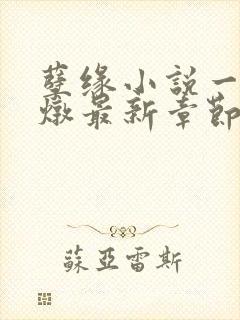 孽缘小説一
燉最新章節
蘇亞雷斯